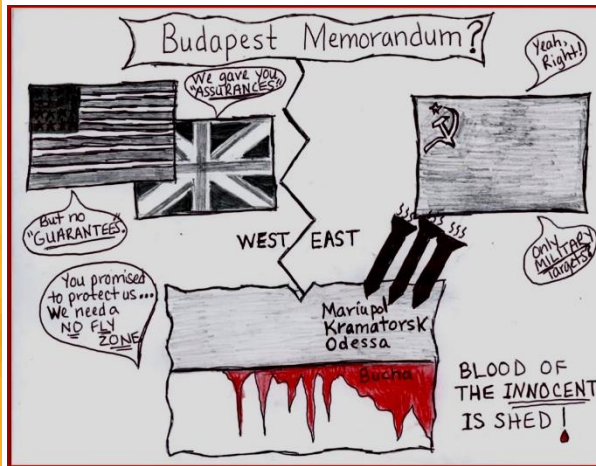 Budapest Memorandum?
We gave you
"ASSURANCES"
But no
"GUARANTEES".
Yeah,
Right!
Only
MILITARY
Targets!
WEST EAST
You promised
to protect us...
We need a
NO FLY
ZONE
Mariupol
Kramatorsk
Odessa
Bucha
BLOOD OF
THE INNOCENT
IS SHED!